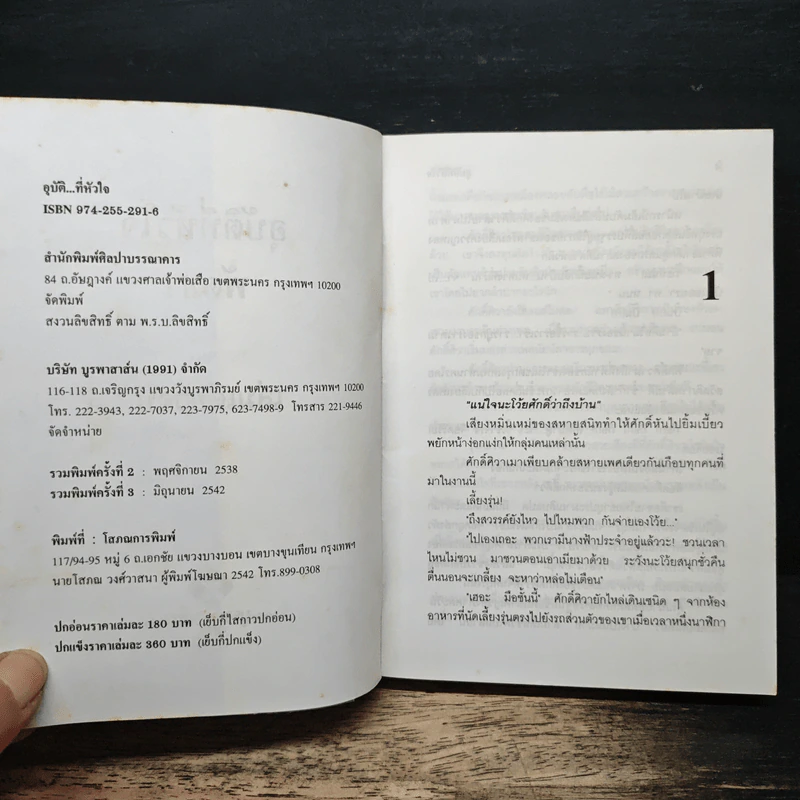 อุบัติ...ที่หัวใจ
ISBN 974-255-291-6
สำนักพิมพ์ศิลปาบรรณาคาร
84 ถ.อัษฎางค์ แขวงศาลเจ้าพ่อเสือ เขตพระนคร กรุงเทพฯ 10200
จัดพิมพ์
สงวนลิขสิทธิ์ ตาม พ.ร.บ.ลิขสิทธิ์
บริษัท บูรพาสาส์น (1991) จำกัด
116-118 ถ.เจริญกรุง แขวงวังบูรพาภิรมย์ เขตพระนคร กรุงเทพฯ 10200
โทร. 222-3943, 222-7037, 223-7975, 623-7498-9 โทรสาร 221-9446
จัดจำหน่าย
รวมพิมพ์ครั้งที่ 2 : พฤศจิกายน 2538
รวมพิมพ์ครั้งที่ 3 : มิถุนายน 2542
พิมพ์ที่ : โสภณการพิมพ์
117/94-95 หมู่ 6 ถ.เอกชัย แขวงบางบอน เขตบางขุนเทียน กรุงเทพฯ
นายโสภณ วงศ์วาสนา ผู้พิมพ์โฆษณา 2542 โทร.899-0308
ปกอ่อนราคาเล่มละ 180 บาท (เย็บกี่ไสกาวปกอ่อน)
ปกแข็งราคาเล่มละ 360 บาท (เย็บกี่ปกแข็ง)
1
"แน่ใจนะโว้ยศักดิ์ว่าถึงบ้าน"
เสียงหมิ่นเหม่ของสหายสนิททำให้ศักดิ์หันไปยิ้มเบี้ยว
พยักหน้างอกแง่กให้กลุ่มคนเหล่านั้น
ศักดิ์ศิวาเมาเพียบคล้ายสหายเพศเดียวกันเกือบทุกคนที่
มาในงานนี้
เลี้ยงรุ่น!
"ถึงสวรรค์ยังไหว ไปไหมพวก กันจ่ายเองโว้ย..."
"ไปเองเถอะ พวกเรามีนางฟ้าประจำอยู่แล้ววะ! ชวนเวลา
ไหนไม่ชวน มาชวนตอนเอาเมียมาด้วย ระวังนะโว้ยสนุกชั่วคืน
ตื่นนอนจะเกลี้ยง จะหาว่าหล่อไม่เตือน"
"เฮอะ มือชั้นนี้" ศักดิ์ศิวายักไหล่เดินเซนิด ๆ จากห้อง
อาหารที่นัดเลี้ยงรุ่นตรงไปยังรถส่วนตัวของเขาเมื่อเวลาหนึ่งนาฬิกา